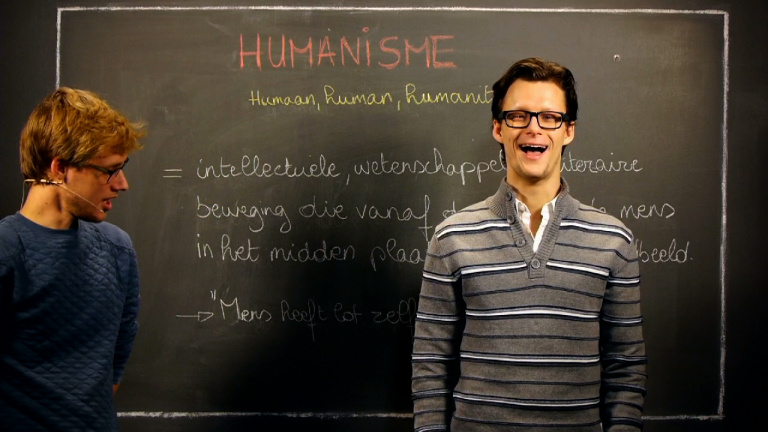 HUMANISME
Humaan, human, humanit
= intellectuele, wetenschappel iteraire
beweging die vanaf d de mens
in het midden plaa beeld.
→ "Mens heeft lot zelf